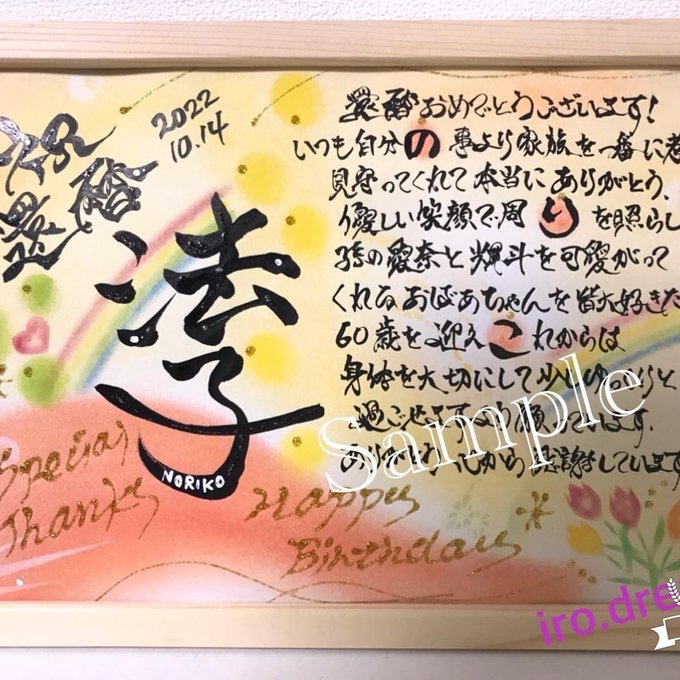 祝
還暦
2022
10.14
法子
NORIKO
還暦おめでとうございます!
いつも自分の事より家族を一番に考
見守ってくれて本当にありがとう、
優しい笑顔で周りを照らし
孫の愛奈と輝斗を可愛がって
くれるおばあちゃんを皆大好きだ
60歳を迎えこれからは
身体を大切にして少しゆっくりと
過ごせますよう願ってます、
ありがとう 心から感謝しています
Special
Thanks
Happy
Birthday
Sample
iro.dre